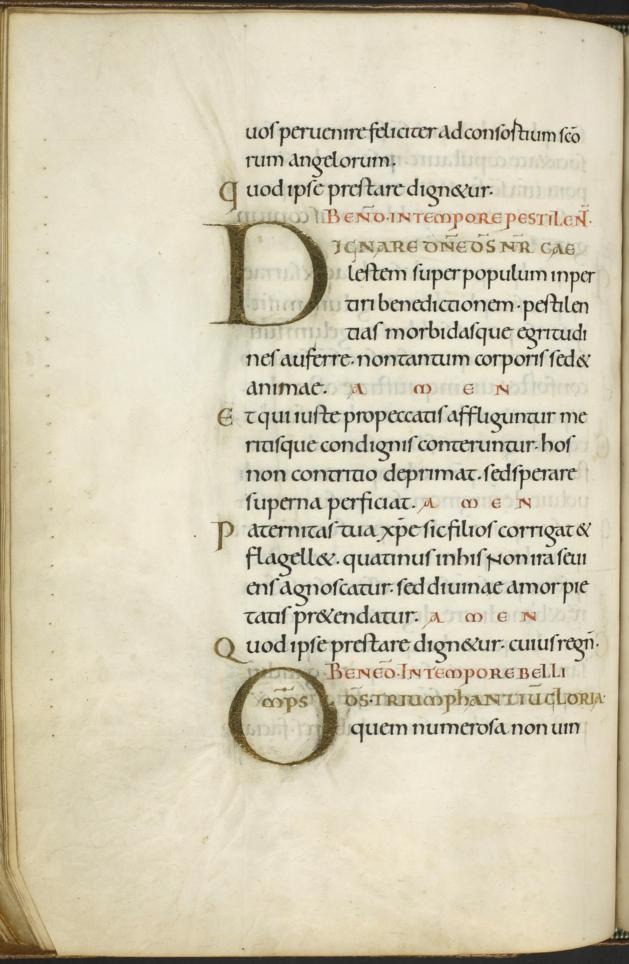 uos peruenire feliciter ad consostium sc̄o
rum angelorum.
Quod ipse prestare dign&ur.
BEN̄D·IN TEMPORE PESTILEN̄.
DIGNARE DN̄E DS̄ NR̄ CAE
lestem super populum inper
tiri benedictionem· pestilen
tias morbidasque egritudi
nes auferre· non tantum corporis sed &
animae. A M E N
Et qui iuste pro peccatis affliguntur me
ritisque condignis conteruntur· hos
non contritio deprimat· sed sperare
superna perficiat. A M E N
Paternitas tua xp̄e sic filios corrigat &
flagell&· quatinus in his non ira seui
ens agnoscatur· sed diuinae amor pie
tatis pr&endatur. A M E N
Quod ipse prestare dign&ur· cuius regn̄·
BENED̄·IN TEMPORE BELLI
OMP̄S DS̄·TRIUMPHANTIŪ GLORIA·
quem numerosa non uin